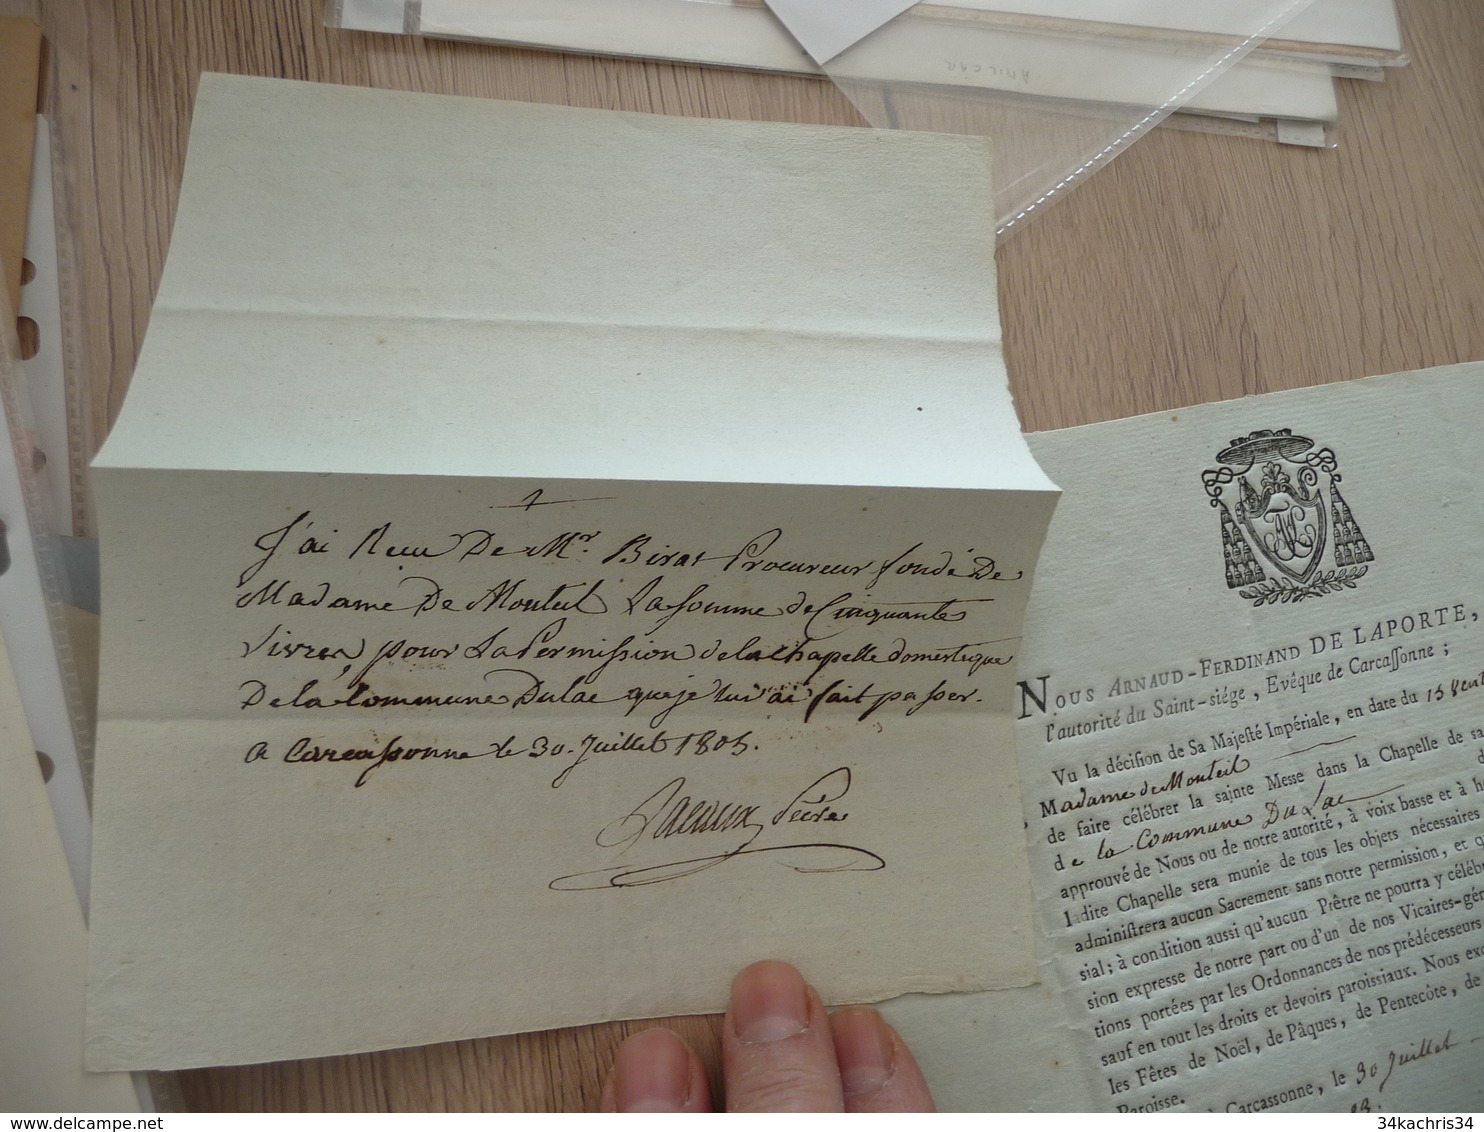 J'ai Recu De Mr. Birat Procureur fondé De
Madame De Monteil La somme de Cinquante
Livres, pour La Permission de la chapelle domestique
De la Commune Dulac que je lui ai fait passer.
a Carcassonne le 30. Juillet 1805.
NOUS ARNAUD-FERDINAND DE LAPORTE,
l'autorité du Saint-siége, Evêque de Carcassonne ;
Vu la décision de Sa Majesté Impériale, en date du 15
Madame de Monteil
de faire célébrer la sainte Messe dans la Chapelle de sa
de la Commune Du Lac
approuvé de Nous ou de notre autorité, à voix basse et à
dite Chapelle sera munie de tous les objets nécessaires
administrera aucun Sacrement sans notre permission, et
sial ; à condition aussi qu'aucun Prêtre ne pourra y
sion expresse de notre part ou d'un de nos
tions portées par les Ordonnances de nos prédécesseurs
sauf en tout les droits et devoirs paroissiaux. Nous
les Fêtes de Noël, de Pâques, de Pentecôte, de
Paroisse.
à Carcassonne, le 30 Juillet
34kachris34
34kachris34